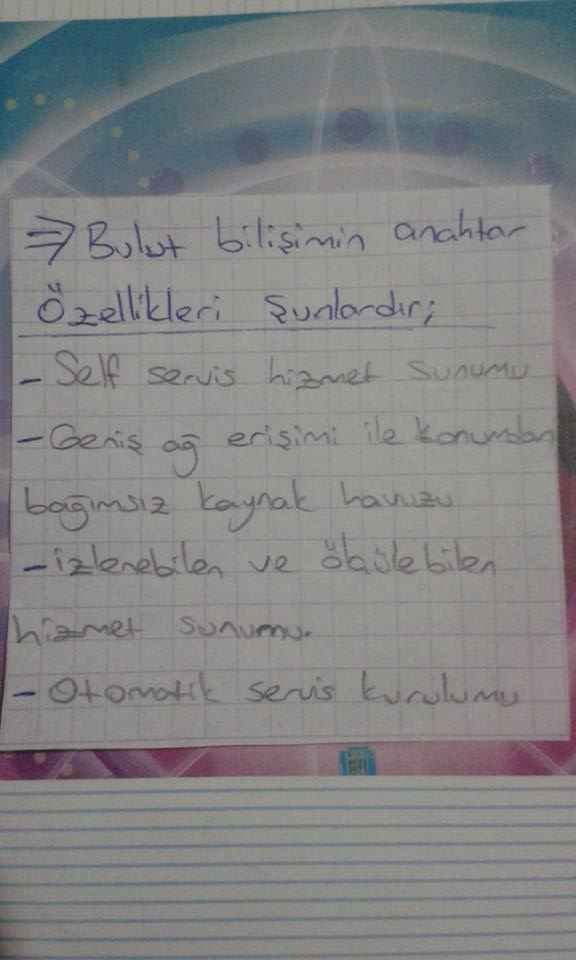 ⇒ Bulut bilişimin anahtar
Özellikleri Şunlardır;
- Self servis hizmet sunumu
- Geniş ağ erişimi ile konumdan
bağımsız kaynak havuzu
- izlenebilen ve ölçülebilen
hizmet sunumu.
- Otomatik servis kurulumu